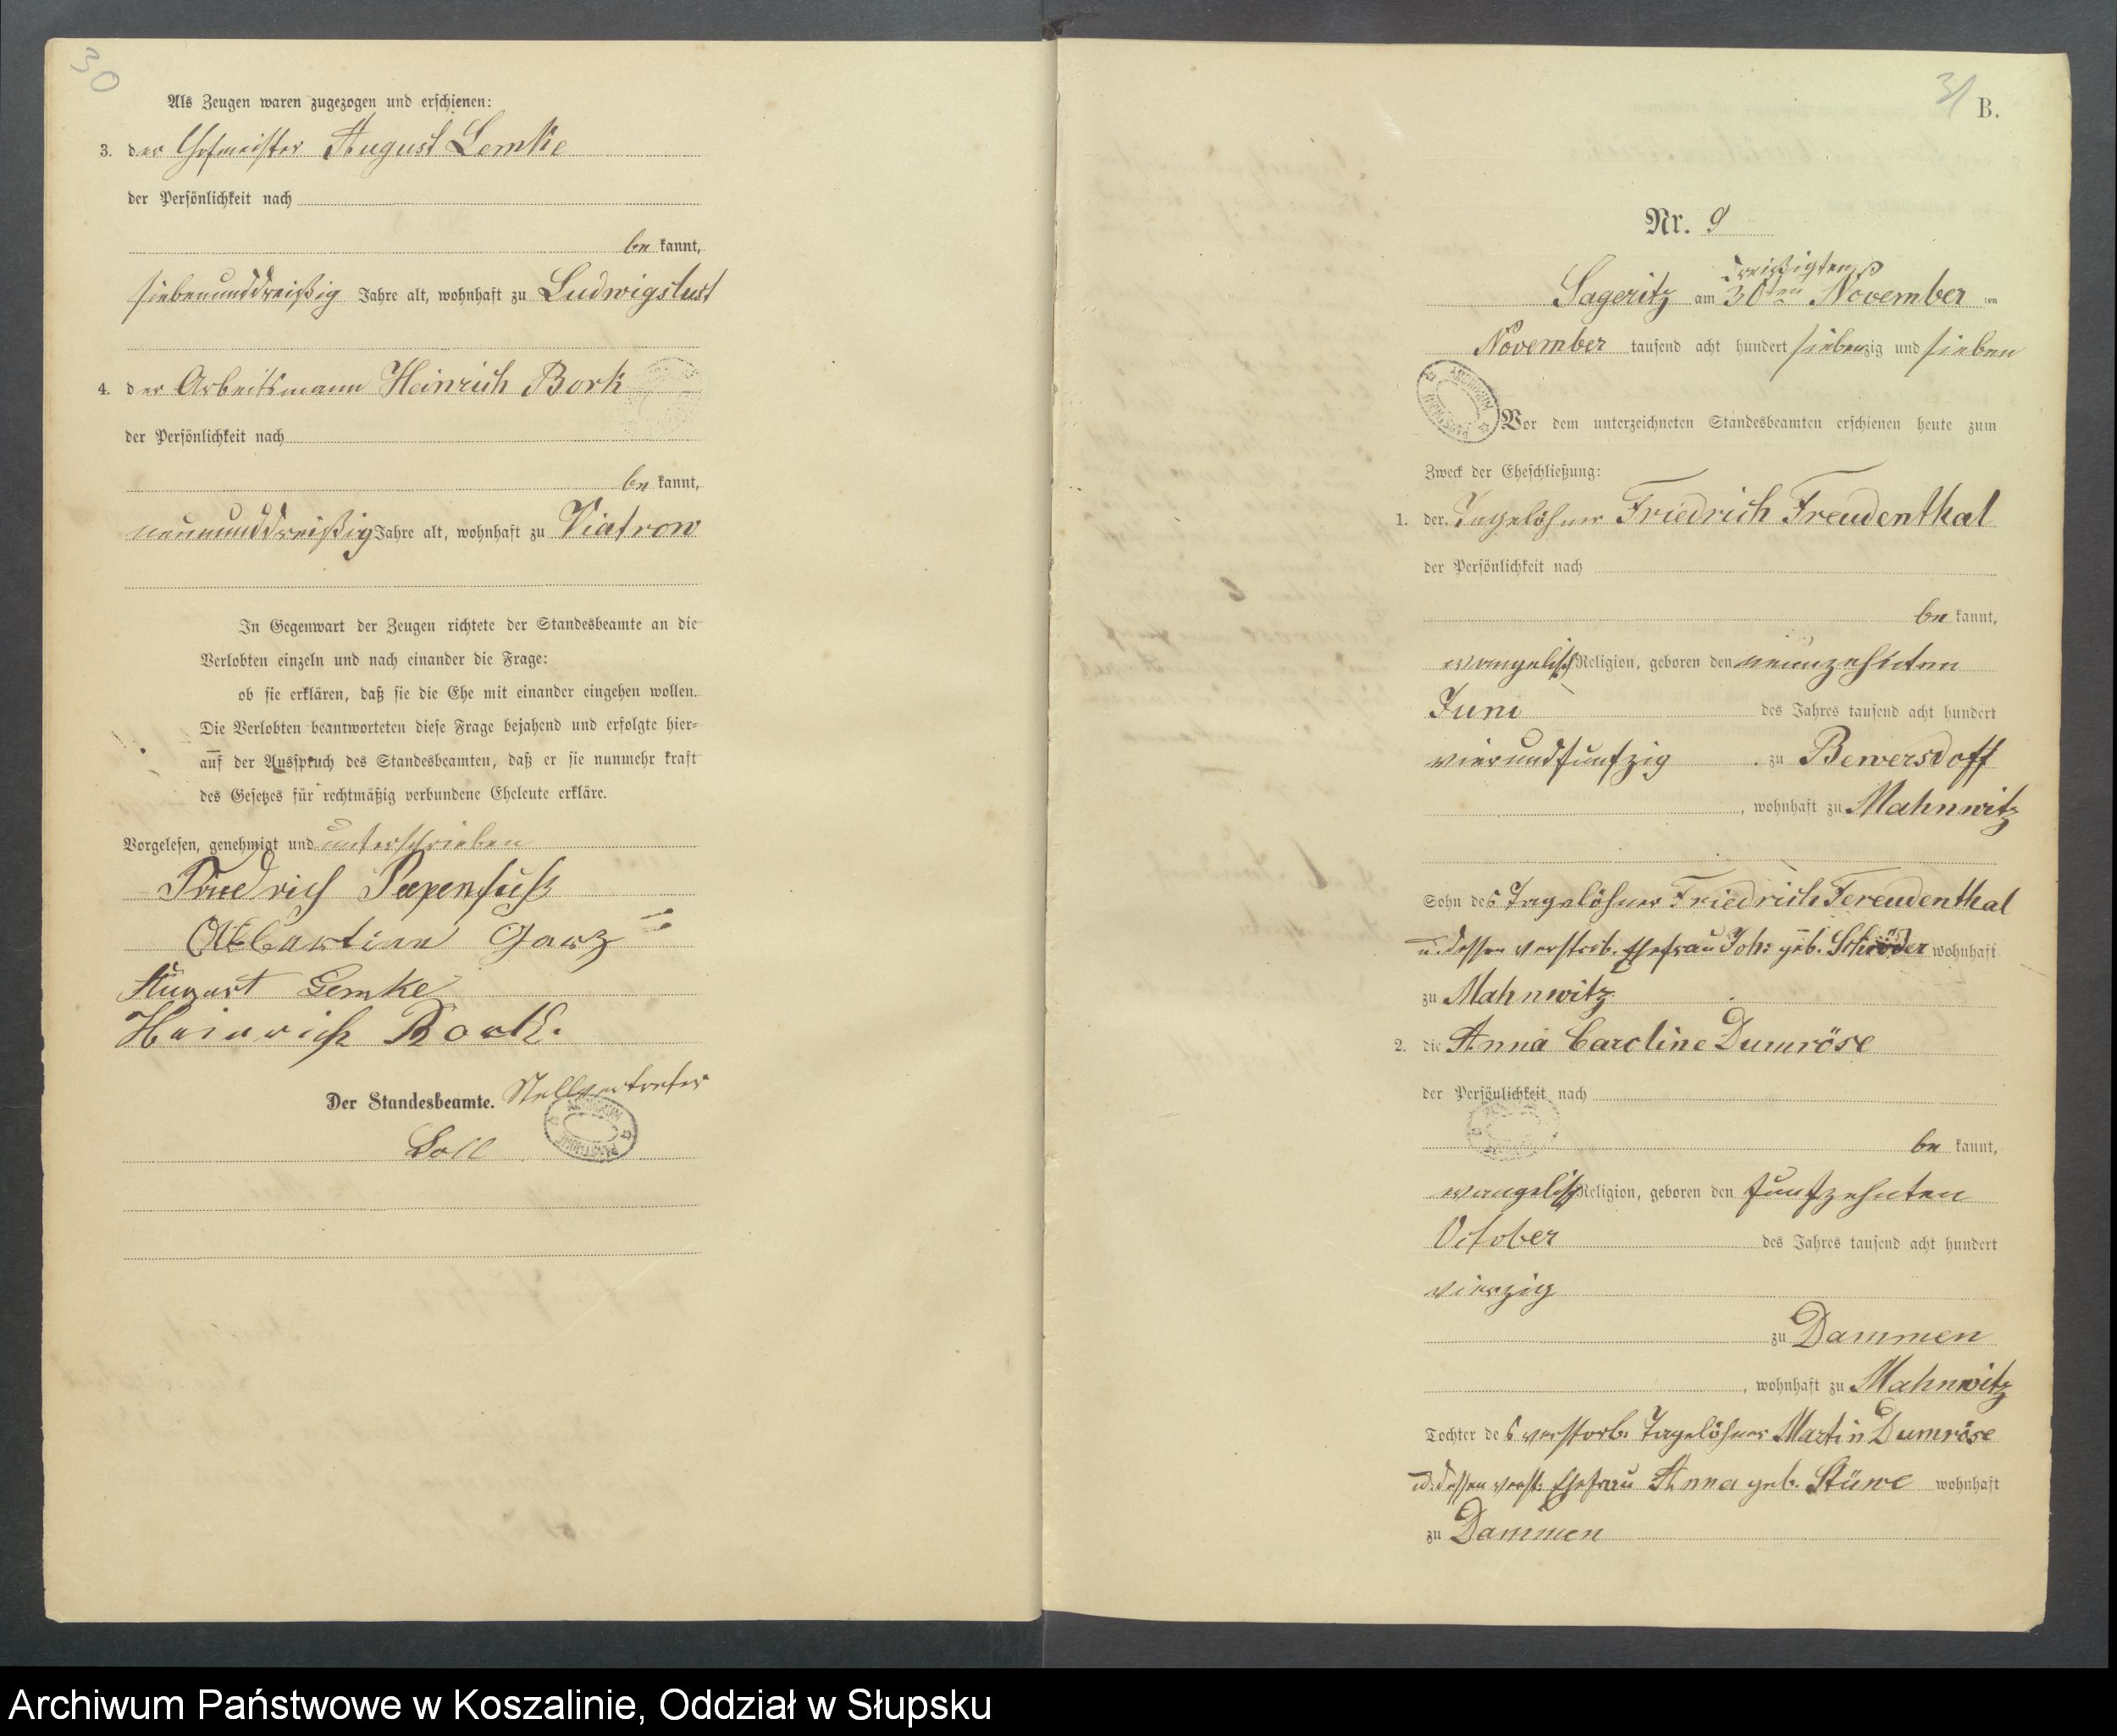 30
Als Zeugen waren zugezogen und erschienen:
3. der Hofmeister August Lemke
der Persönlichkeit nach
be kannt,
siebenunddreißig Jahre alt, wohnhaft zu Ludwigslust
4. der Arbeitsmann Heinrich Bork
der Persönlichkeit nach
be kannt,
neununddreißig Jahre alt, wohnhaft zu Viatrow
In Gegenwart der Zeugen richtete der Standesbeamte an die
Verlobten einzeln und nach einander die Frage:
ob sie erklären, daß sie die Ehe mit einander eingehen wollen.
Die Verlobten beantworteten diese Frage bejahend und erfolgte hier-
auf der Ausspruch des Standesbeamten, daß er sie nunmehr kraft
des Gesetzes für rechtmäßig verbundene Eheleute erkläre.
Vorgelesen, genehmigt und unterschrieben
Friedrich Papenfuß
Albertine Garz
August Lemke
Heinrich Bork.
Der Standesbeamte. Stellvertreter
ARCHIWUM PAŃSTWOWE
31
B.
Nr. 9
dreißigten
Sageritz am 30ten November ten
November tausend acht hundert siebenzig und sieben
ARCHIWUM PAŃSTWOWE
Vor dem unterzeichneten Standesbeamten erschienen heute zum
Zweck der Eheschließung:
1. der Tagelöhner Friedrich Freudenthal
der Persönlichkeit nach
be kannt,
evangelisch Religion, geboren den neunzehnten
Juni des Jahres tausend acht hundert
vierundfunfzig zu Bewersdoff
, wohnhaft zu Mahnwitz
Sohn des Tagelöhner Friedrich Fereudenthal
u. dessen verstrb. Ehefrau Joh: geb. Schröder wohnhaft
zu Mahnwitz
2. die Anna Caroline Dumröse
der Persönlichkeit nach
be kannt,
evangelisch Religion, geboren den funfzehnten
October des Jahres tausend acht hundert
vierzig
zu Dammen
, wohnhaft zu Mahnwitz
Tochter des verstorb. Tagelöhner Martin Dumröse
u. dessen verst. Ehefrau Anna geb. Stüwe wohnhaft
zu Dammen
Archiwum Państwowe w Koszalinie, Oddział w Słupsku